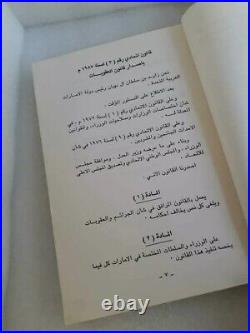 قانون اتحادي رقم (٣) لسنة ١٩٨٧ م
بإصدار قانون العقوبات
نحن زايد بن سلطان آل نهيان رئيس دولة الامارات
العربية المتحدة
بعد الاطلاع على الدستور المؤقت
وعلى القانون الاتحادي رقم (١) لسنة ١٩٧٢ م في
شأن اختصاصات الوزارات وصلاحيات الوزراء والقوانين
المعدلة له
وعلى القانون الاتحادي رقم (٩) لسنة ١٩٧٦ في شأن
الاحداث الجانحين والمشردين
وبناء على ما عرضه وزير العدل وموافقة مجلس
الوزراء والمجلس الوطني الاتحادي وتصديق المجلس الاعلى
للاتحاد
أصدرنا القانون الآتي
المادة (١)
يعمل بالقانون المرافق في شأن الجرائم والعقوبات
ويلغى كل نص يخالف أحكامه
المادة (٢)
على الوزراء والسلطات المختصة في الامارات كل فيما
يخصه تنفيذ هذا القانون
- ٧ -